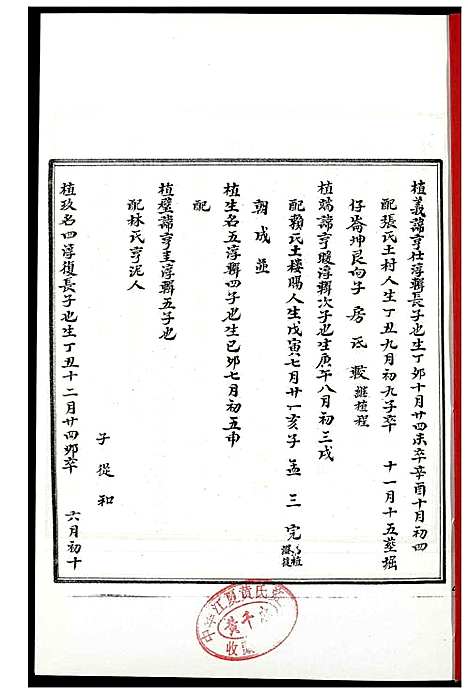 植義諱亨仕淳聯長子也生丁卯十月廿四未卒辛酉十月初四
配張氏土村人生丁丑九月初九子卒 十一月十五葬掘
仔崙坤艮向子 房 氏 瑕 繼植程
植瑞諱亨暖淳聯次子也生庚午八月初三戌
配賴氏土楼腸人生戊寅七月廿一亥子 孟 三 完
朝 成 並
植生名五淳聯四子也生已卯七月初五申
配
植璧諱亨圭淳聯五子也
配林氏亨泥人
子 從 和
植玖名四淳復長子也生丁丑十二月廿四卯卒 六月初十
中华江夏黄氏
收